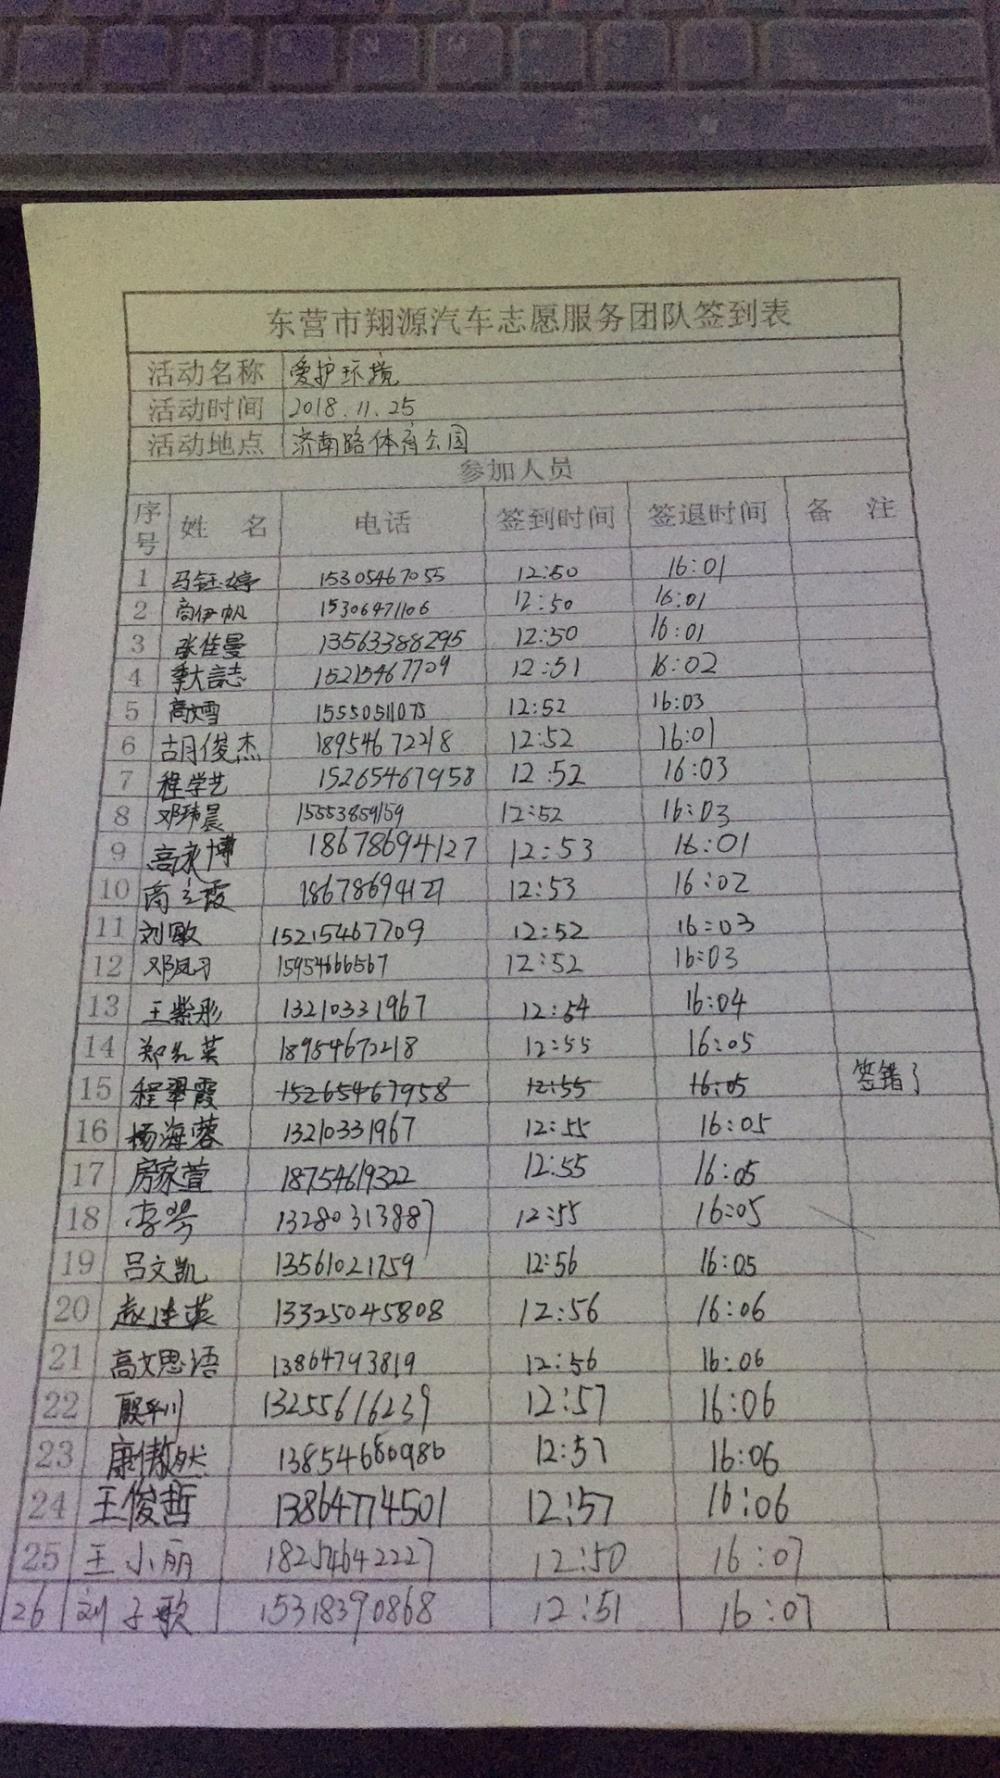 东营市翔源汽车志愿服务团队签到表
活动名称 爱护环境
活动时间 2018.11.25
活动地点 济南路体育公园
参加人员
序号 姓 名 电话 签到时间 签退时间 备 注
1 马钰婷 15305467055 12:50 16:01
2 高伊帆 15306471106 12:50 16:01
3 张佳曼 13563388295 12:50 16:01
4 15215467709 12:51 16:02
5 高文雪 15550511075 12:52 16:03
6 胡俊杰 18954672218 12:52 16:01
7 程学艺 15265467958 12:52 16:03
8 邓玮晨 15553859159 12:52 16:03
9 高永博 18678694127 12:53 16:01
10 商立霞 18678694127 12:53 16:02
11 刘敏 15215467709 12:52 16:03
12 15954666567 12:52 16:03
13 王紫彤 13210331967 12:54 16:04
14 郑红英 18954672218 12:55 16:05
15 程翠霞 15265467958 12:55 16:05 签错了
16 杨海蓉 13210331967 12:55 16:05
17 房家萱 18754619322 12:55 16:05
18 李琴 13280313887 12:55 16:05
19 吕文凯 13561021759 12:56 16:05
20 赵连英 13325045808 12:56 16:06
21 高文思语 13864793819 12:56 16:06
22 殷平川 13255616239 12:57 16:06
23 康傲然 13854680986 12:57 16:06
24 王俊哲 13864774501 12:57 16:06
25 王小丽 18254642227 12:50 16:07
26 刘子歌 15318390868 12:51 16:07